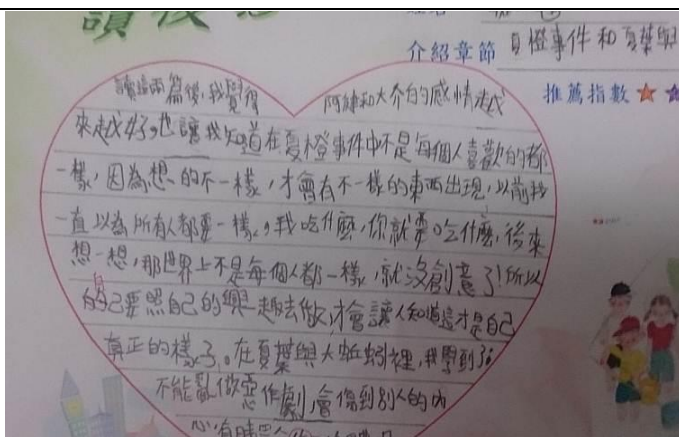 讀後
介紹章節 夏橙事件和夏葉與
推薦指數
讀這兩篇後,我覺得 阿健和大介的感情越
來越好了,也讓我知道在夏橙事件中不是每個人喜歡的都
一樣,因為想的不一樣,才會有不一樣的東西出現,以前我
一直以為所有人都要一樣,我吃什麼,你就要吃什麼,後來
想一想,那世界上不是每個人都一樣,就沒創意了!所以
自己要照自己的興趣去做,才會讓人知道這才是自己
真正的樣子。在夏葉與大蚯蚓裡,我學到了
不能亂做惡作劇,會傷到別人的內
心,有時